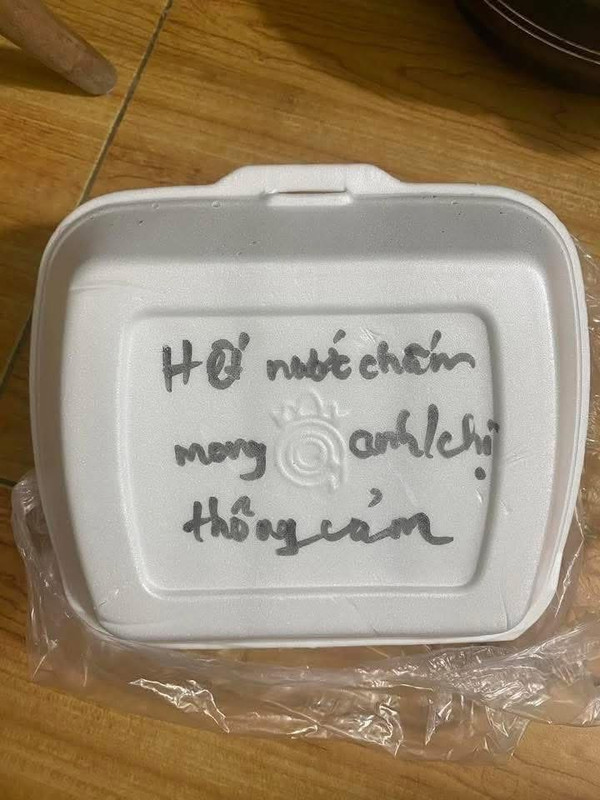 HẾt nước chấm
mong anh/chị
thông cảm